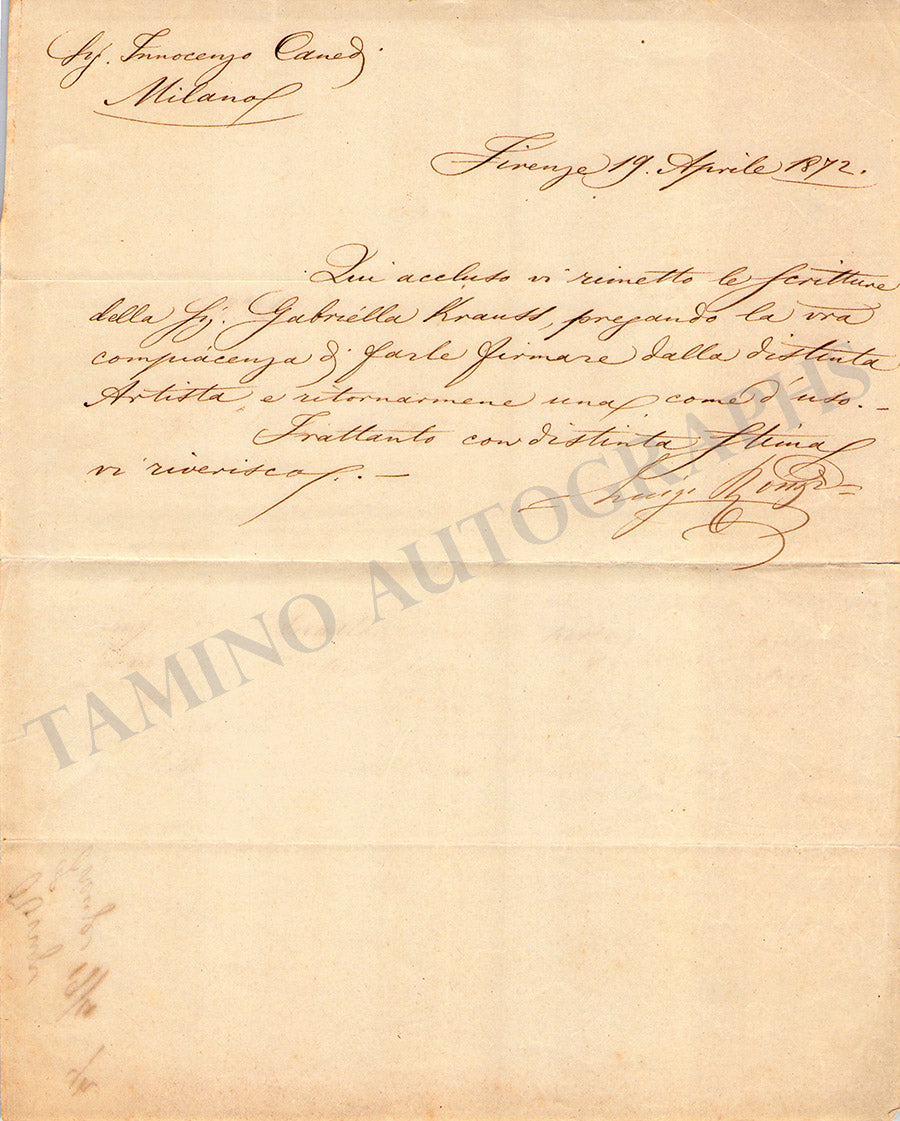 Sig. Innocenzo Canedi
Milano
Firenze 19. Aprile 1872.
Qui accluso vi rimetto le scritture
della Sig. Gabriella Krauss, pregando la vra
compiacenza di farle firmare dalla distinta
Artista, e ritornarmene una come d'uso. -
Frattanto con distinta stima
vi riverisco. . -
Luigi
TAMINO AUTOGRAPHS